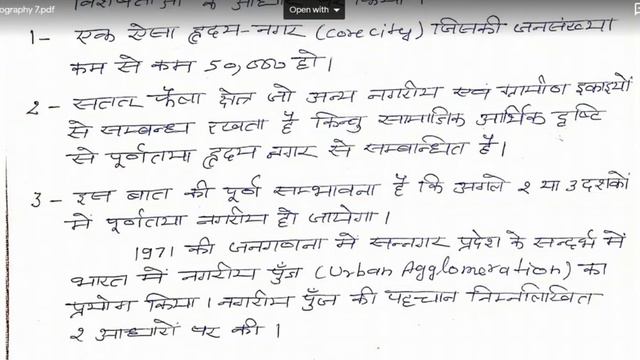 ography 7.pdf
Open with
विशेषताओं के आधार पर किया।
1- एक ऐसा हृदय-नगर (core city) जिसकी जनसंख्या
कम से कम 50,000 हो।
2- सतत फैला क्षेत्र जो अन्य नगरीय एवं ग्रामीण इकाइयों
से सम्बन्ध रखता है किन्तु सामाजिक आर्थिक दृष्टि
से पूर्णतया हृदय नगर से सम्बन्धित है।
3- इस बात की पूर्ण सम्भावना है कि अगले २ या 3 दशकों
में पूर्णतया नगरीय हो जायेगा।
1971 की जनगणना में सन्नगर प्रदेश के सन्दर्भ में
भारत में नगरीय पुँज (Urban Agglomeration) का
प्रयोग किया। नगरीय पुँज की पहचान निम्नलिखित
२ आधारों पर की।